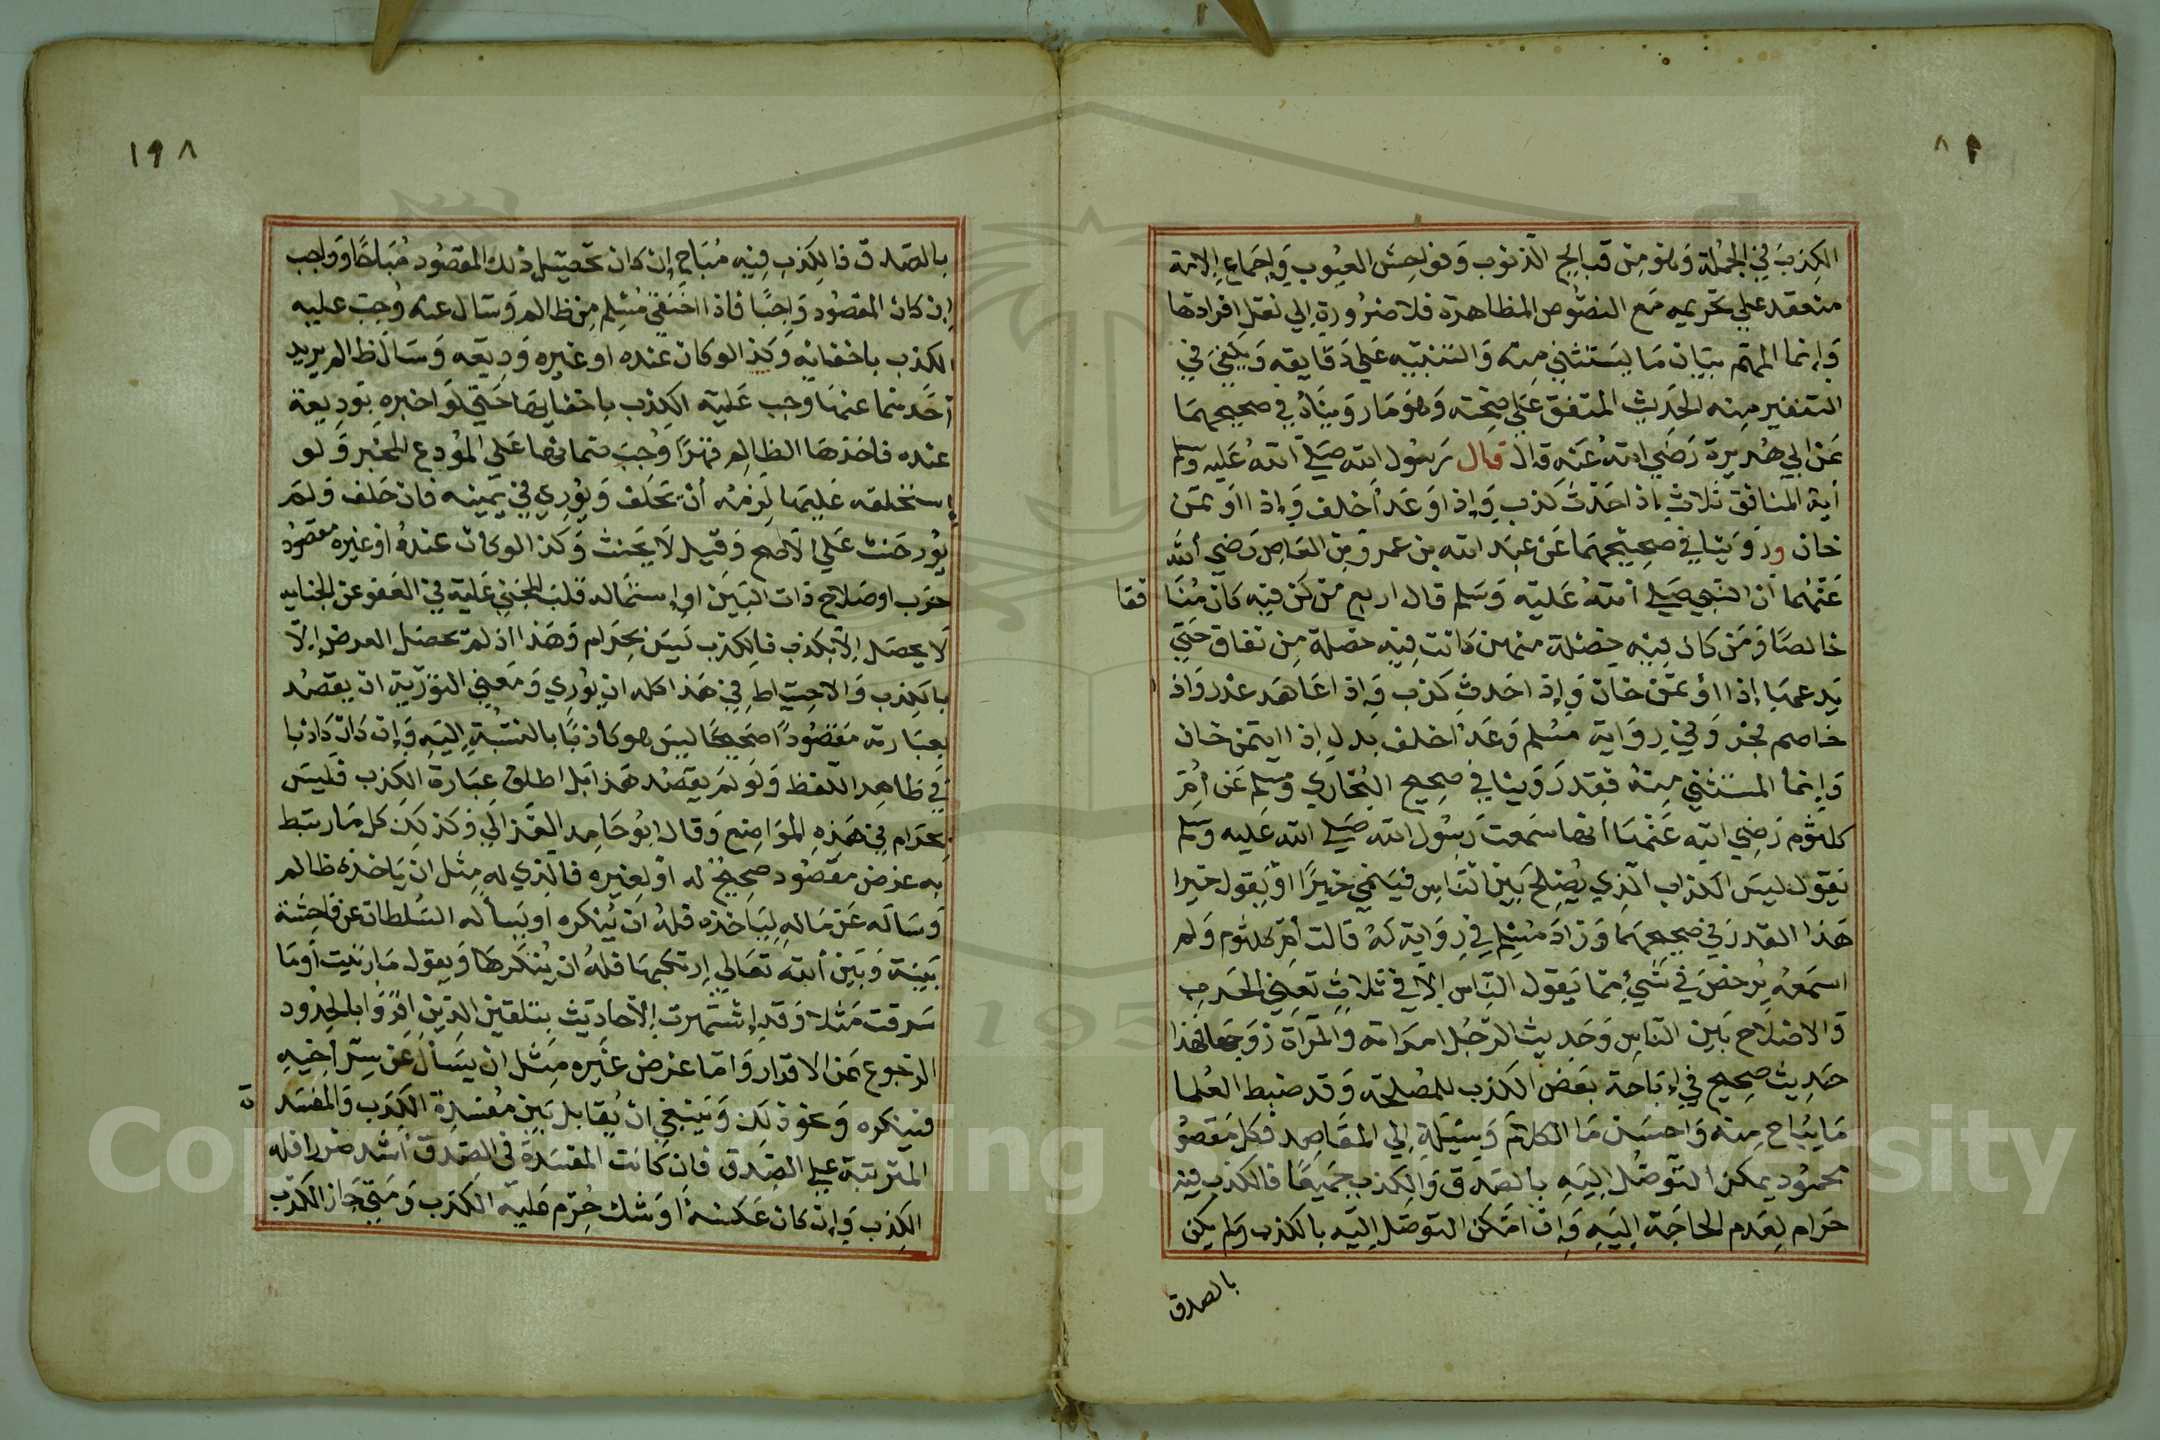 ٨٩
الكِذبَ في الجملة وَهو مِن قبايح الذنوب وَفواحِش العيوب وَإجماع الامة
منعقد علي تحريمه مَع النصوص المتظاهرة فلا ضرُورة إلي نقل افرادها
وَإنما المهم بيان مَا يستثني منه وَالتنبيه عَلي دَقايقه وَيَكفي في
التنفير منه الحَديث المتفق عَلي صحته وَهو مَا روَينَاهُ في صحيحيهما
عَن ابي هُريرة رَضي الله عَنه قال قال رَسُول الله صَلي الله عَليه وسلم
أية المنافق ثلاث إذا حَدّث كذب وَإذا وَعَدَ أخلف وَإذا اؤتمن
خان وروَينا في صحيحيهما عَن عبد الله بن عمرو بن العاص رَضي الله
عَنهُما أن النبي صَلي الله عَليه وَسَلم قال اربع مَن كن فيه كان مُنَا فقا
خالصًا وَمَن كان فيه خصلة منهن كانت فيه خصلة مِن نفاق حَتي
يَدعهَا إذا اؤتمن خان وَإذا حَدث كذب وَإذا عَاهَد غدر وَاذا
خاصم فجر وَفي رِوَاية مسلم وَعَدَ اخلف بدل إذا ايتمن خان
وَإنما المستثني مِنهُ فقد رَوينا في صحيح البُخاري ومسلم عَن أمّ
كلثوم رَضي الله عَنهَا انها سَمعت رَسُول الله صَلي الله عَليه وسلم
يَقول ليسَ الكذاب الذي يُصلح بَين النّاس فيَنمي خيرًا اوْ يقول خيرا
هَذا القدر في صحيحيهمَا وَزادَ مسلم في رِوَاية لهُ قالت أمّ كلثوم وَلم
اسمَعهُ يُرخصَ في شَيْءٍ مِمّا يَقول النّاس إلاّ في ثلاثٍ تعني الحَرب
وَالاصلاح بَين النّاس وَحَديث الرّجُل امرَاته وَالمَرأة زوجَها فهذا
حَديث صَحيح في إبَاحة بَعض الكذب للمصلحة وَقد ضبط العُلما
مَا يُباح منه وَاحسَن مَا الكلام وَسيلة إلي المقاصِد فكل مَقصوُ
محمُود يمكن التوَصّل اليه بالصّدق وَالكذب جميعًا فالكذب فيه
حَرام لِعَدم الحاجَة اليه وَإن امْكن التوَصّل اليَه بالكذب وَلم يكن
بالصدق
١٩٨
بالصّدق فالكِذب فيه مُبَاح إن كان تحصيل ذلك المقصُود مُبَاحًا وَواجب
إن كان المقصُود وَاجبًا فاذا اختفي مُسلم مِن ظالم وَسَال عنه وُجبَ عليه
الكذب باخفائه وَكذا لو كان عنده او غيره وَدِيعه وَسَال ظالم يريد
أخَذها عنهَا وجب عَليه الكذب باخفايهَا حَتي لو اخبره بوَديعة
عنده فاخذهَا الظالم قهرًا وُجبَ ضمانها عَلي المُودع المخبر وَلو
إستحلفه عَليهَا لزمَهُ أن يَحَلف وَيُوَرِي في يَمينه فان حَلف وَلم
يُوَر حَنث عَلي الاَصَح وَقيل لاَ يحنث وَكذا لو كان عندهُ اوْ غيره مقصوُد
حرَب او صَلاح ذات البَين اوِ إستمَاله قلب المجني عَليه في العَفو عن الجناية
لاَ يحصَل الاّ بكذب فالكذب ليسَ بحَرَام وَهَذا اذ لمْ يحصَل الغرض إلاّ
بالكِذب وَالاحتيَاط في هَذا كله ان يُوَري وَمَعني التوْرِية ان يقصُد
بعبَارته مَقصُودًا صَحيحًا ليسَ هو كاذبًا بالنّسْبَة إليه وَإن كانَ كاذبا
في ظاهِر اللفظ وَلو لم يقصد هَذا بَل اطلق عِبَارة الكذب فليسَ
بحَرام في هَذه المواضِع وَقال ابُو حَامِد الغَزالي وَكذلك كل مَا رتبط
به غرَض مقصُود صحيحٌ له أوْ لغيره فالّذي له مِثل ان يَاخذهُ ظالم
وَسَاله عَن مَاله ليَاخذه فلهُ أن يُنكره او يَسأله السُلطان عَن فاحِشة
بَينَهُ وَبَين الله تعَالي إرتكبهَا فلهُ ان يُنكرهَا وَيقول مَا زنيت أومَا
سَرقت مَثلا وَقدِ إشتهرت الأحَاديث بتلقين الذين اقرّوا بالحدُود
الرجُوع عَن الاقرار وَامّا غرَض غيره مِثل ان يَسألَ عَن سِرّ أخيه
فينكره وَنحو ذلك وَيَنبغي ان يُقابل بَين مُفسَدة الكِذب وَالمفسَد ة
المترتبة علي الصّدق فان كانت المفسَدة في الصّدق أشد ضررا فله
الكِذب وَإن كان عَكسهُ أوَشك حُرّم عَليه الكذب وَمَتي جَاز الكذب